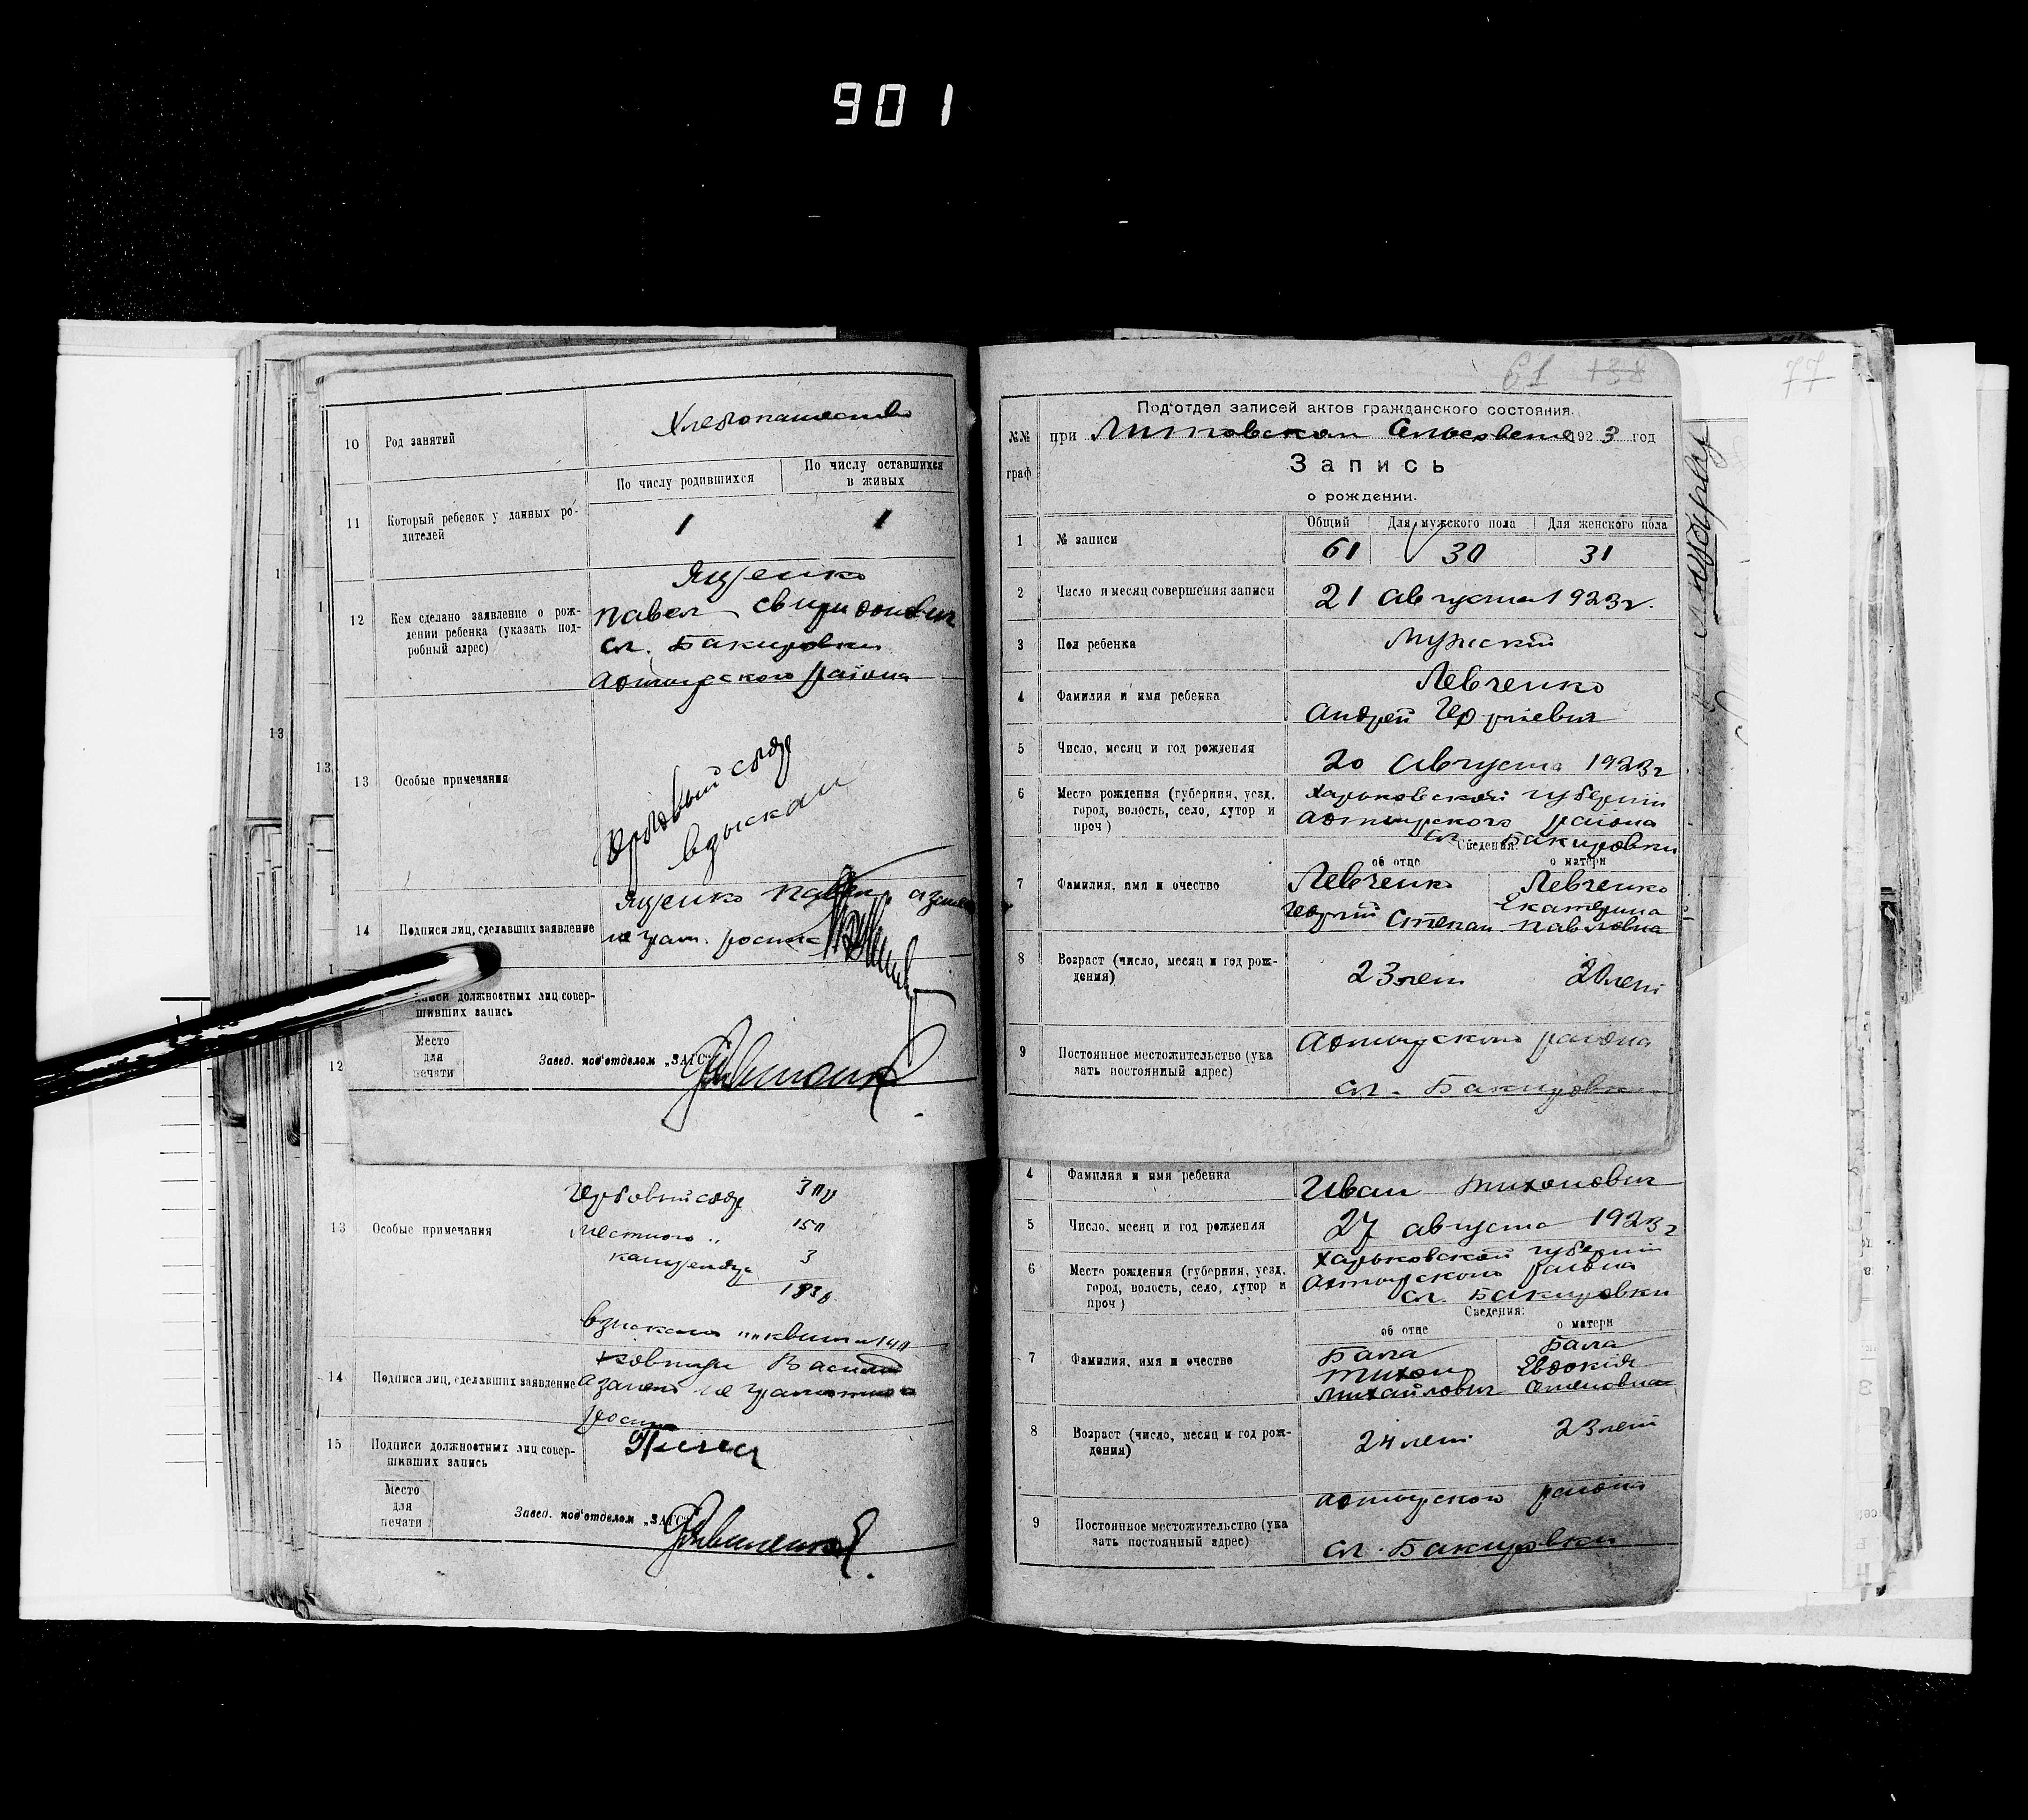 901
10 Род занятий
Хлебопашество
По числу родившихся
По числу оставшихся
в живых
11 Который ребенок у данных ро-
дителей
1 1
12 Кем сделано заявление о рож-
дении ребенка (указать под-
робный адрес)
Ященко
Павел Свиридович
сл. Бакировки
Ахтырского района
13 Особые примечания
Гербовый сбор
взыскан
14 Подписи лиц, сделавших заявление
Ященко Павел, а за него
не грам. росписа
должностных лиц совер-
шивших запись
Место
для
печати
Завед. под'отделом „ЗАГС“
13 Особые примечания
Гербовый сбор
местного „
канцеляр 3
14 Подписи лиц, сделавших заявление
Васил
неграмотного
15 Подписи должностных лиц совер-
шивших запись
Место
для
печати
Завед. под'отделом „ЗАГС“
61 138
77
№№
граф
Под'отдел записей актов гражданского состояния.
при Литовском Сельсовете 1923 год
Запись
о рождении.
Общий Для мужского пола Для женского пола
1 № записи 61 30 31
2 Число и месяц совершения записи 21 августа 1923 г.
3 Пол ребенка Мужский
4 Фамилия и имя ребенка Левченко
Андрей Георгіевич
5 Число, месяц и год рождения 20 августа 1923 г
6 Место рождения (губерния, уезд,
город, волость, село, хутор и
проч)
Харьковской губернии
Ахтырского района
сл. Бакировки
Сведения:
об отце о матери
7 Фамилия, имя и очество
Левченко Левченко
Георгій Степан Екатерина
Павловна
8 Возраст (число, месяц и год рож-
дения)
23 лет 20 лет
9 Постоянное местожительство (ука
зать постоянный адрес)
Ахтырского района
сл. Бакировки
4 Фамилия и имя ребенка Иван Тихонович
5 Число, месяц и год рождения 27 августа 1923 г
6 Место рождения (губерния, уезд,
город, волость, село, хутор и
проч)
Харьковской губернии
Ахтырского района
сл. Бакировки
Сведения:
об отце о матери
7 Фамилия, имя и очество
Бала Бала
Тихон Евдокія
Михайлович Семеновна
8 Возраст (число, месяц и год рож-
дения)
24 лет 23 лет
9 Постоянное местожительство (ука
зать постоянный адрес)
Ахтырского района
сл. Бакировки